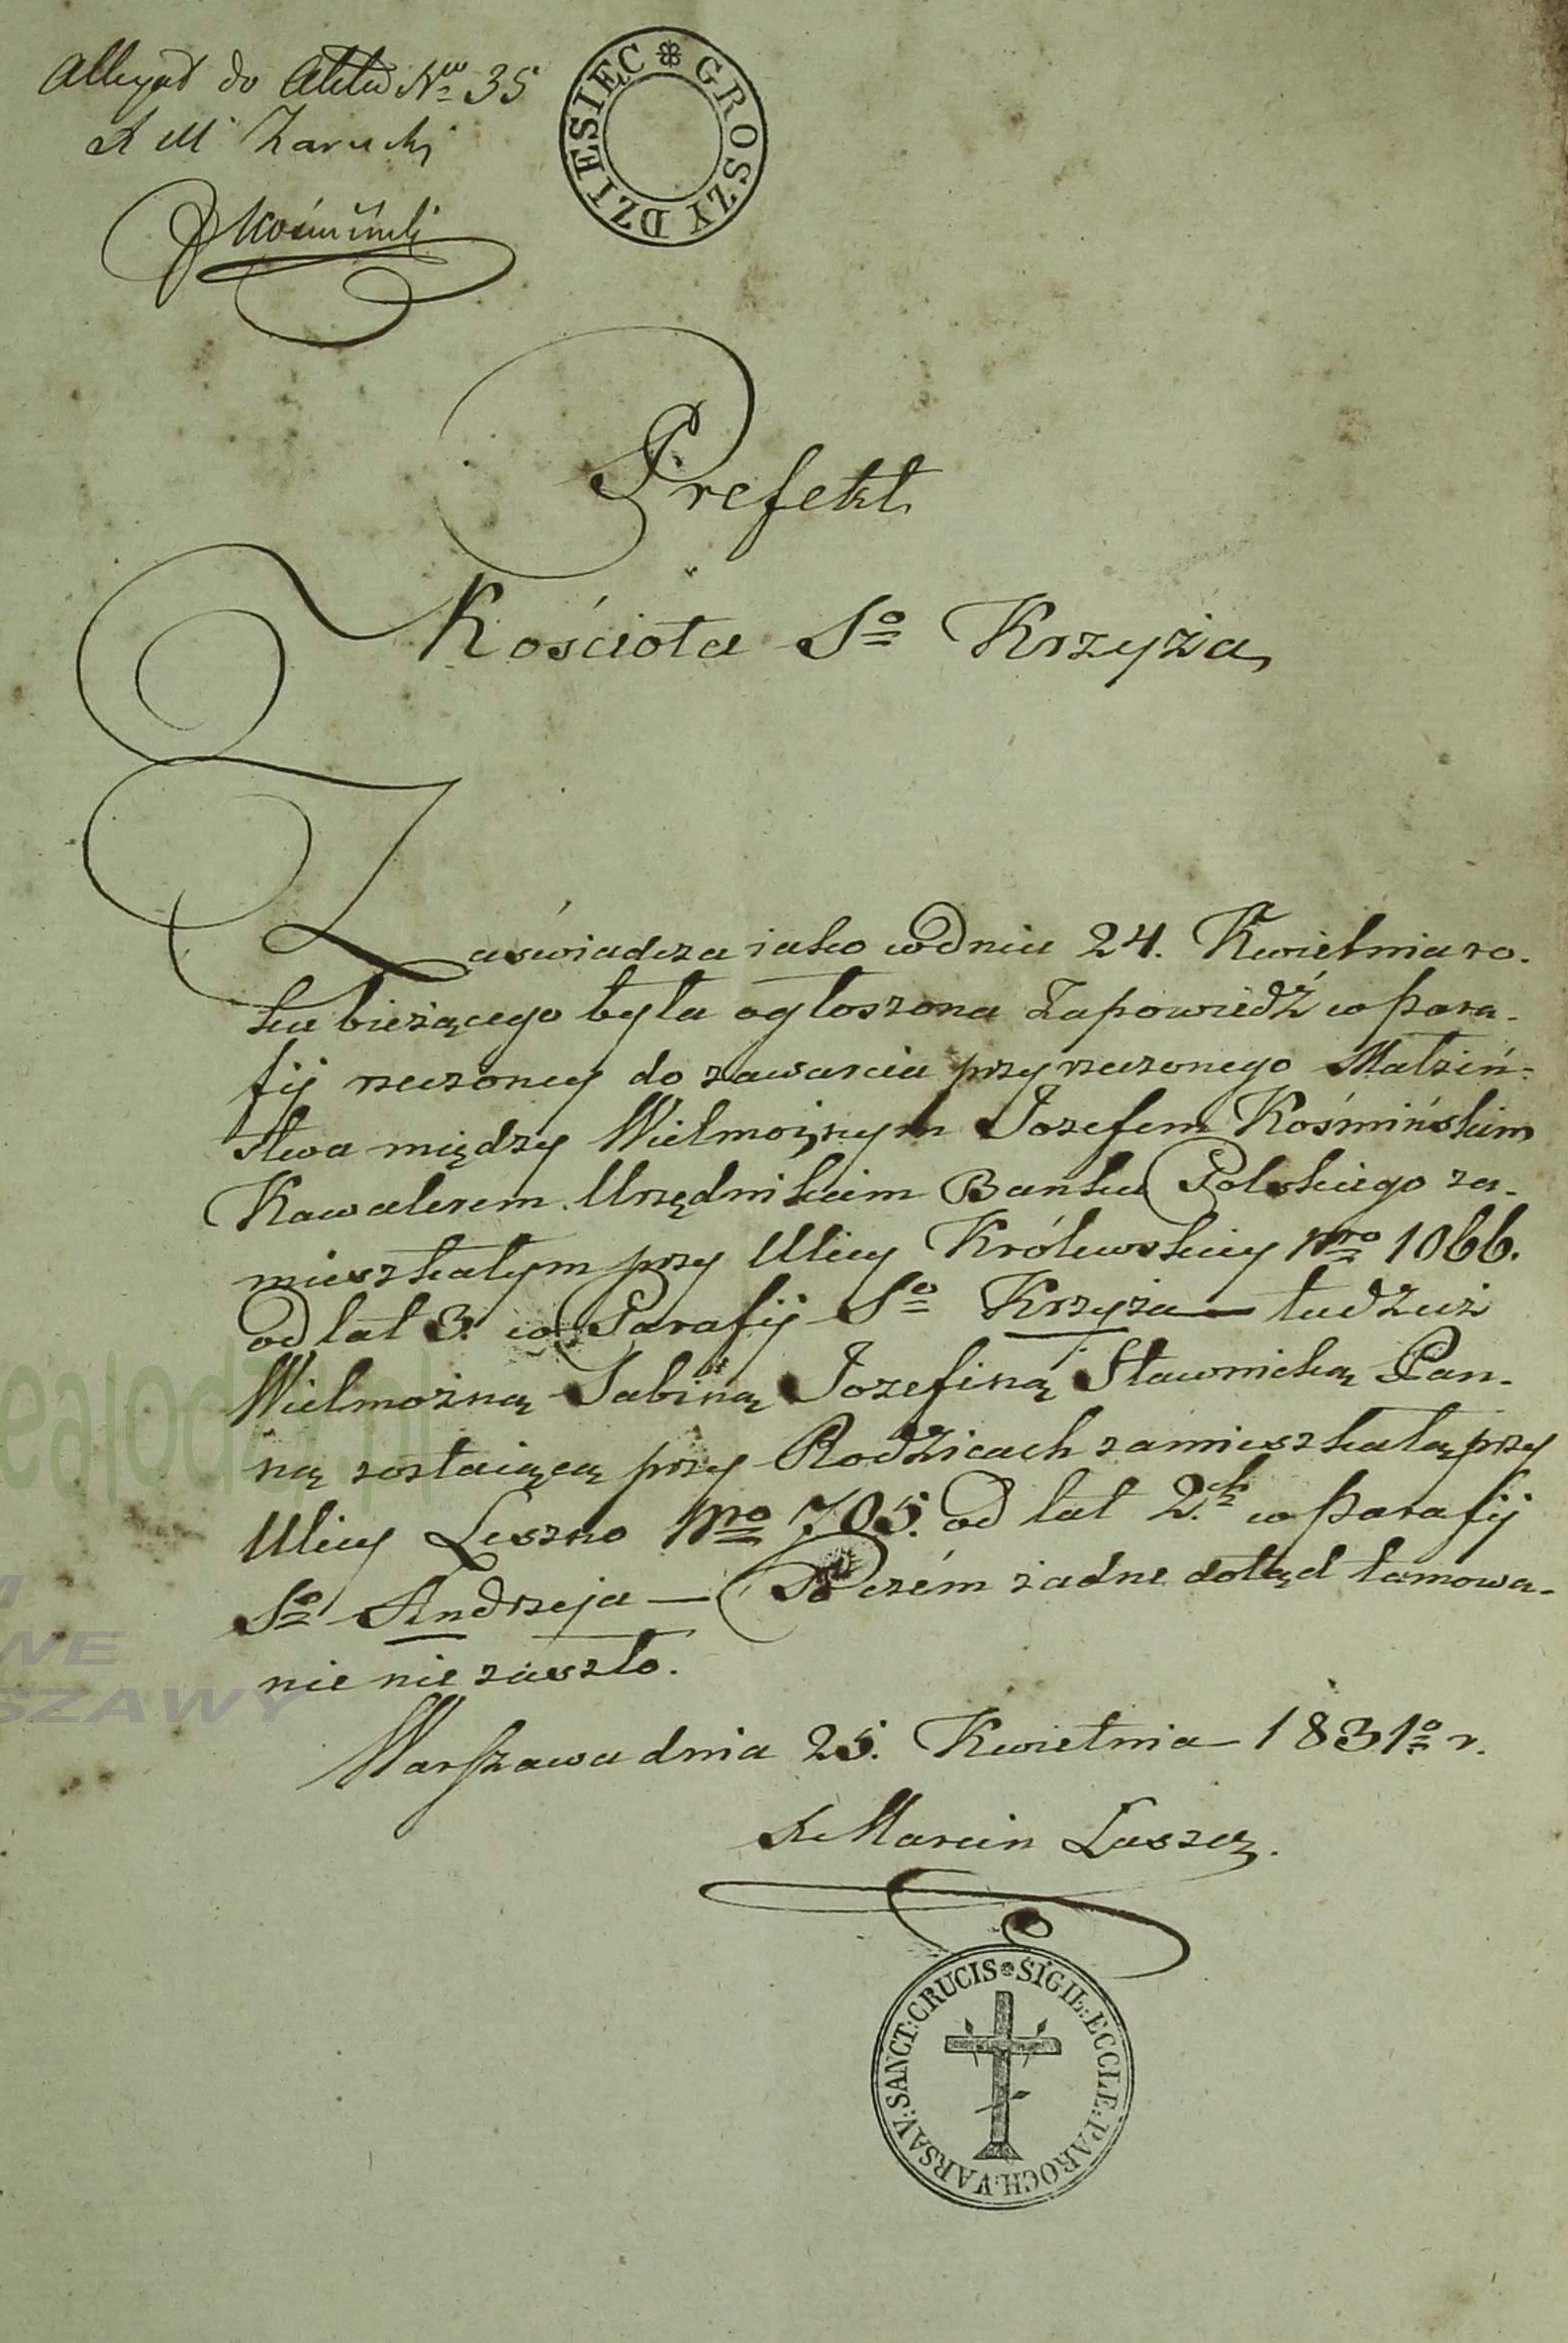 Allegat do Aktu Nro 35
X M Zarucki
JKośmiński
DZIESIEC GROSZY
Prefekt
Kościoła So Krzyża,
Zaświadcza iako w dniu 24. Kwietnia ro-
ku bieżącego była ogłoszona Zapowiedź w para-
fij rzeczoney do zawarcia przyrzeczonego Małżeń-
stwa między Wielmożnym Jozefem Kośmińskim
Kawalerem Urzędnikiem Banku Polskiego za-
mieszkałym przy Ulicy Królewskiey Nro 1066.
od lat 3. w Parafij So Krzyża — tudzież
Wielmożną Sabiną Jozefiną Sławnicką Pan-
ną zostaiącą przy Rodzicach zamieszkałą przy
Ulicy Leszno Nro 705. od lat 2.ch w parafij
So Andrzeja — Po czém żadne dotąd tamowa-
nie nie zaszło.
Warszawa dnia 25. Kwietnia 1831o r.
X Marcin Laszcz.
SIGIL: ECCLE: PAROCH: VARSAV: SANCT: CRUCIS
ealodzy.pl
WE
SZAWY